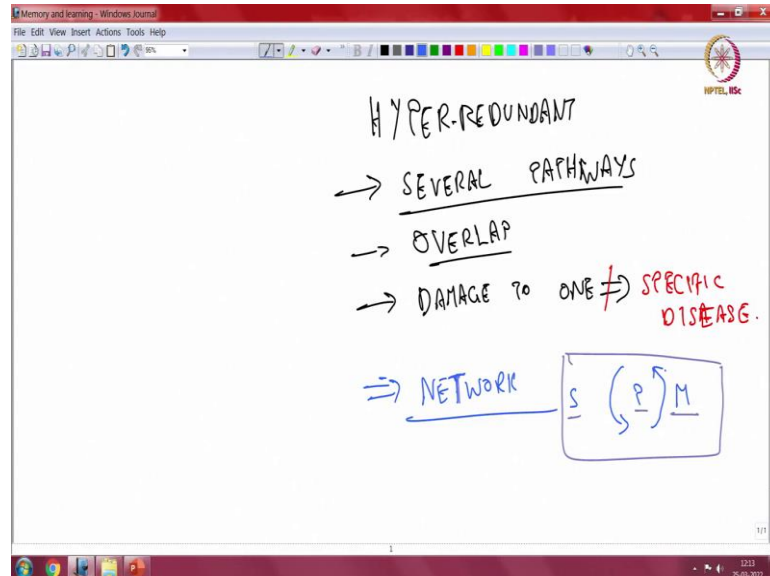 Memory and learning - Windows Journal
File Edit View Insert Actions Tools Help
86%
NPTEL, IISc
HYPER-REDUNDANT
→ SEVERAL PATHWAYS
→ OVERLAP
→ DAMAGE TO ONE ⇏ SPECIFIC
DISEASE.
⇒ NETWORK S P M
1/1
1
12:13
25-03-2022